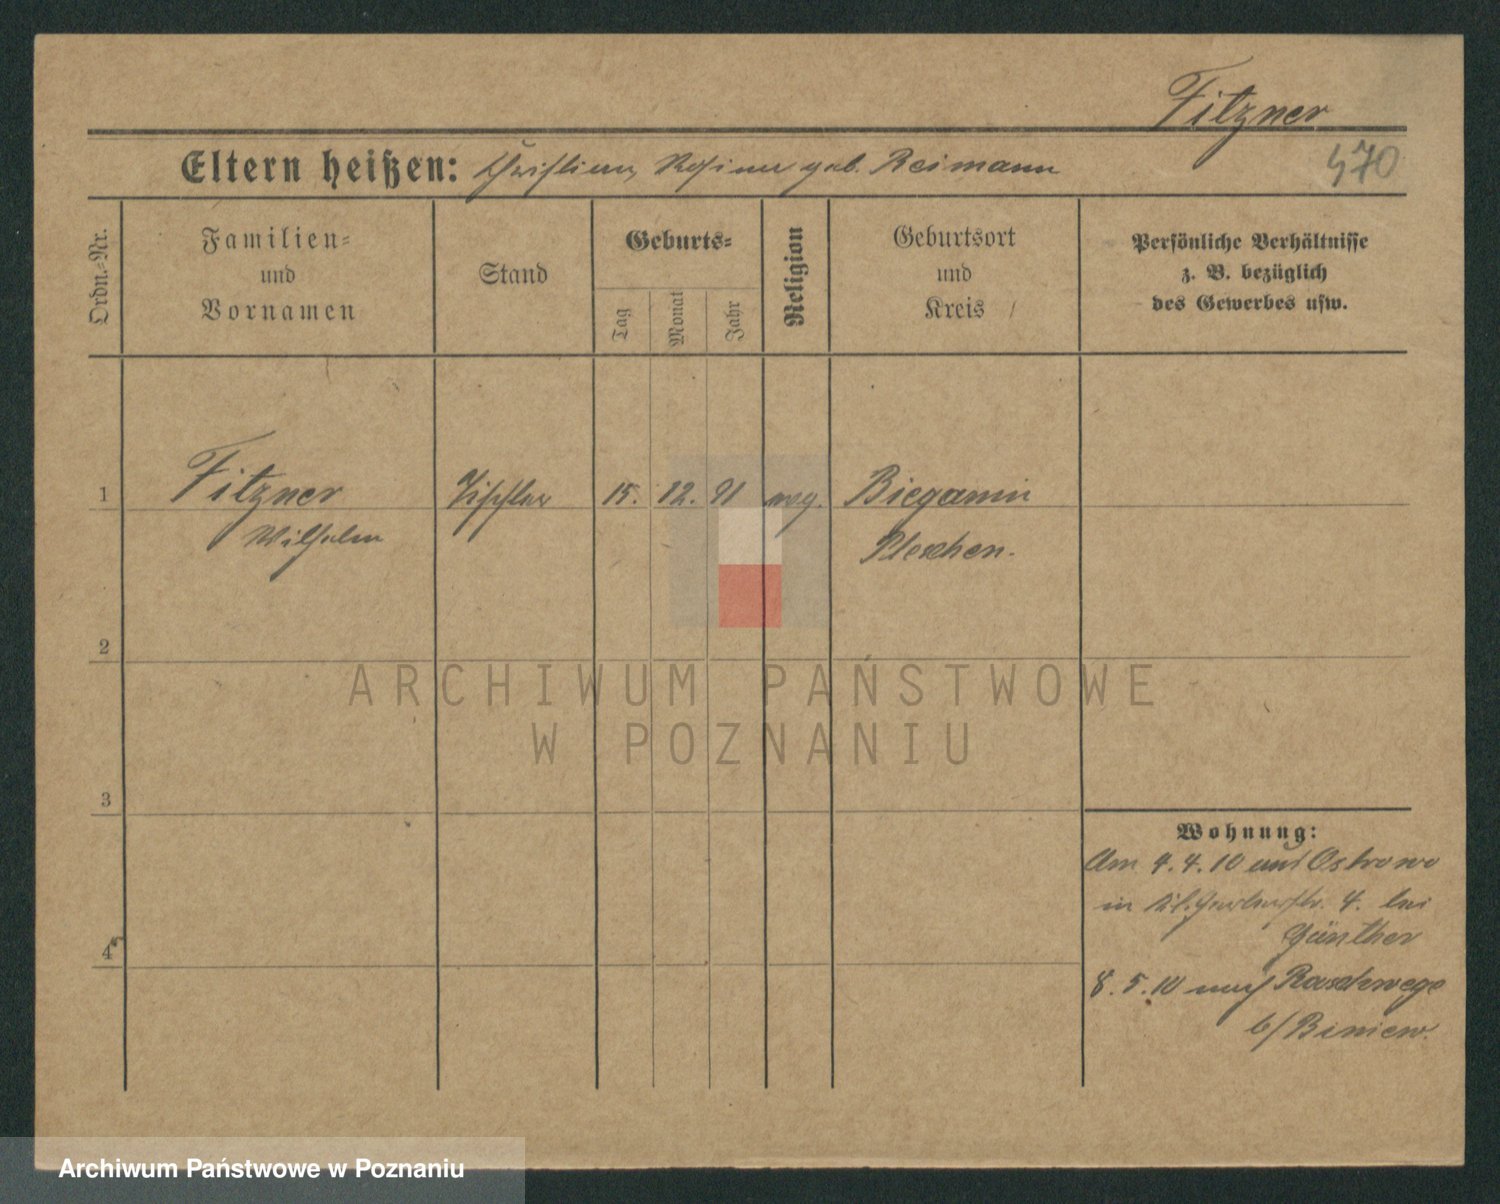 Fitzner
470
Eltern heißen: Christian, Rosina geb. Reimann
Ordn.=Nr.
Familien=
und
Vornamen
Stand
Geburts=
Tag
Monat
Jahr
Religion
Geburtsort
und
Kreis
Persönliche Verhältnisse
z. B. bezüglich
des Gewerbes usw.
1
Fitzner
Wilhelm
Tischler
15.
12.
91
evg.
Biegamin
Pleschen.
2
ARCHIWUM PAŃSTWOWE
W POZNANIU
3
4
Wohnung:
Am 4.4.10 aus Ostrowo
in Kl. Gerberstr. 4. bei
Günther
8.5.10 nach Raschwege
b/Biniew.
Archiwum Państwowe w Poznaniu